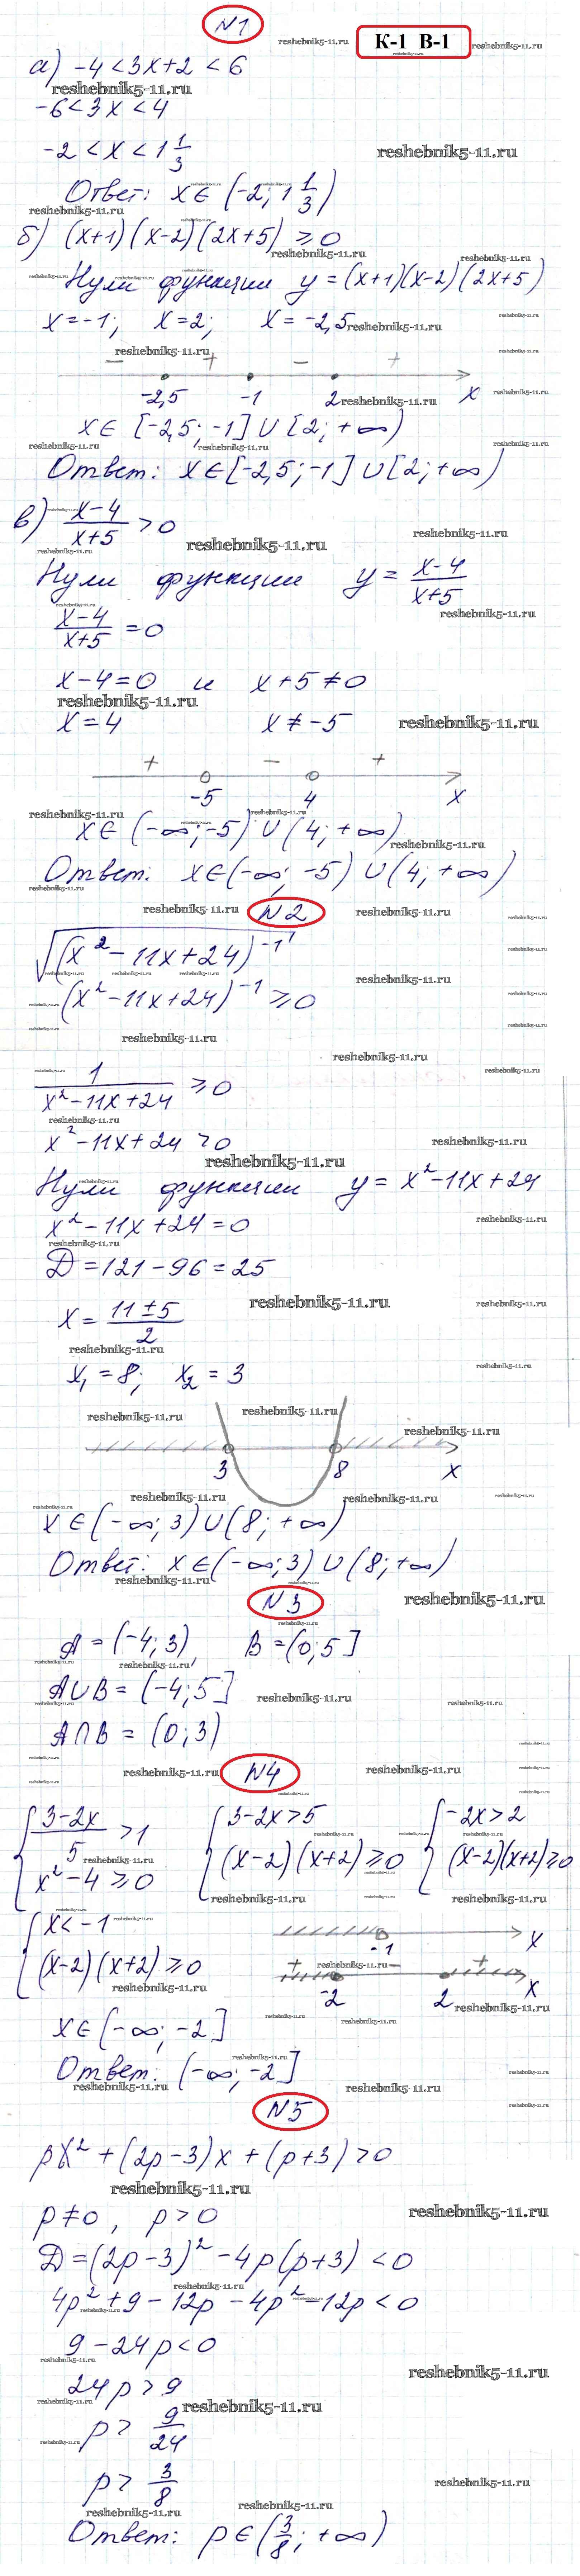 N1
К-1 В-1
а) -4 < 3x+2 < 6
-6 < 3x < 4
-2 < x < 1 1/3
Ответ: x∈ (-2; 1 1/3)
б) (x+1)(x-2)(2x+5) ≥ 0
Нули функции y = (x+1)(x-2)(2x+5)
x = -1; x = 2; x = -2,5
- + - +
-2,5 -1 2 x
x∈ [-2,5; -1] ∪ [2; +∞)
Ответ: x∈[-2,5; -1] ∪ [2; +∞)
в) (x-4)/(x+5) > 0
Нули функции y = (x-4)/(x+5)
(x-4)/(x+5) = 0
x-4=0 и x+5≠0
x=4 x≠-5
+ - +
-5 4 x
x∈ (-∞; -5) ∪ (4; +∞)
Ответ. x∈(-∞; -5) ∪ (4; +∞)
N2
√((x²-11x+24)⁻¹)
(x²-11x+24)⁻¹ ≥ 0
1/(x²-11x+24) ≥ 0
x²-11x+24 > 0
Нули функции y = x²-11x+24
x²-11x+24=0
D=121-96=25
x = (11±5)/2
x₁ = 8; x₂ = 3
3 8 x
x∈(-∞; 3) ∪ (8; +∞)
Ответ: x∈(-∞; 3) ∪ (8; +∞)
N3
A = (-4; 3), B = (0; 5]
A∪B = (-4; 5]
A∩B = (0; 3)
N4
{ (3-2x)/5 > 1 { 3-2x > 5 { -2x > 2
x²-4 ≥ 0 (x-2)(x+2) ≥ 0 (x-2)(x+2) ≥ 0
{ x < -1 -1 x
(x-2)(x+2) ≥ 0 + - +
-2 2 x
x∈(-∞; -2]
Ответ: (-∞; -2]
N5
px² + (2p-3)x + (p+3) > 0
p≠0, p > 0
D = (2p-3)² - 4p(p+3) < 0
4p² + 9 - 12p - 4p² - 12p < 0
9 - 24p < 0
24p > 9
p > 9/24
p > 3/8
Ответ: p∈(3/8; +∞)
reshebnik5-11.ru